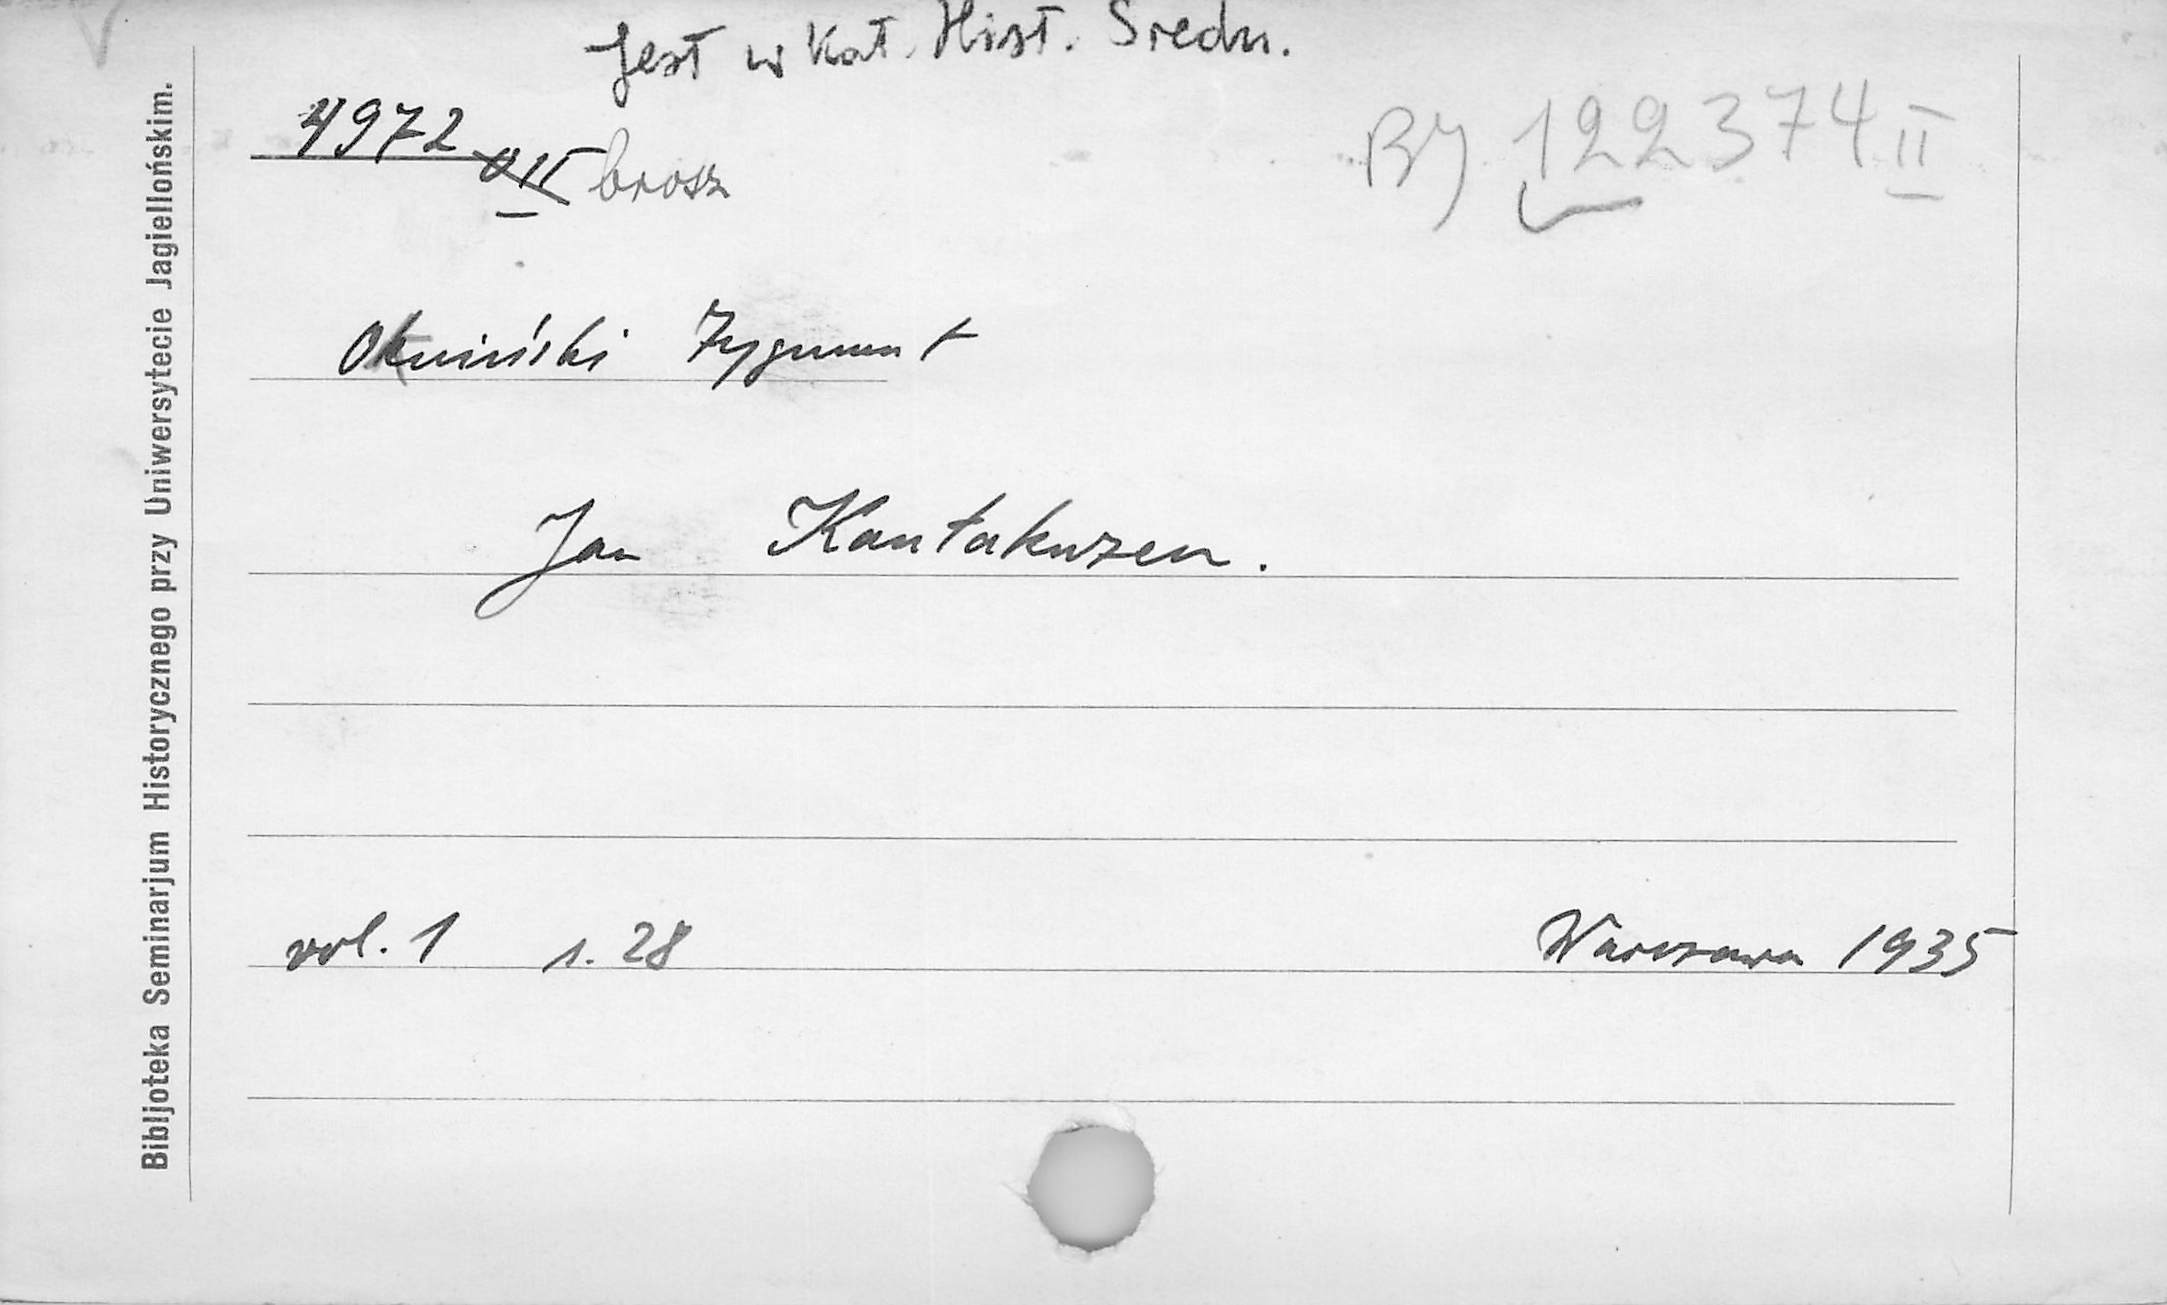 Jest w Kat. Hist. Średn.
4972 II brosz
BJ 122374 II
Okniński Zygmunt
Jan Kantakuzen.
vol. 1 s. 28 Warszawa 1935
Bibljoteka Seminarjum Historycznego przy Uniwersytecie Jagiellońskim.